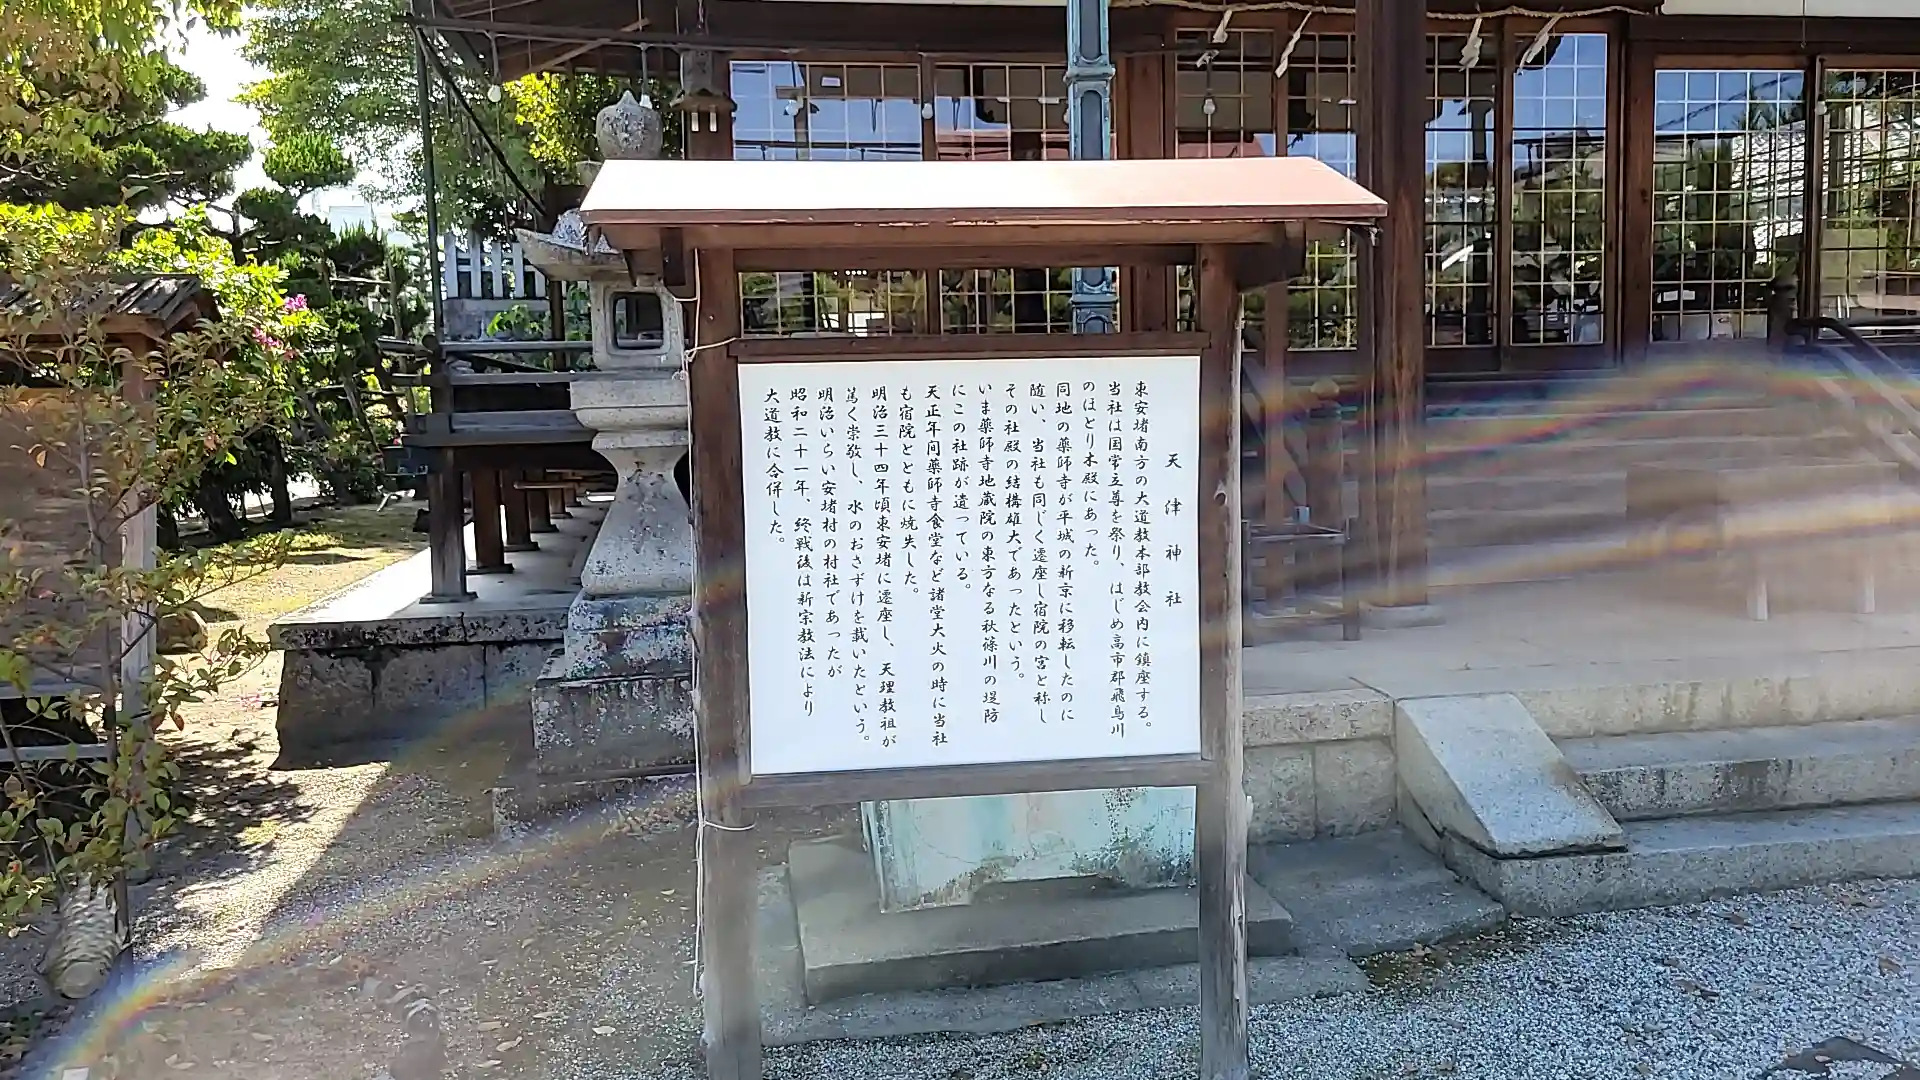 天津神社
東安堵南方の大道教本部教会内に鎮座する。
当社は国常立尊を祭り、はじめ高市郡飛鳥川
のほとり木殿にあった。
同地の薬師寺が平城の新京に移転したのに
随い、当社も同じく遷座し宿院の宮と称し
その社殿の結構雄大であったという。
いま薬師寺地蔵院の東方なる秋篠川の堤防
にこの社跡が遺っている。
天正年间薬師寺食堂など諸堂大火の時に当社
も宿院とともに焼失した。
明治三十四年頃東安堵に遷座し、天理教祖が
篤く崇敬し、水のおさずけを載いたという。
明治いらい安堵村の村社であったが
昭和二十一年、終戦後は新宗教法により
大道教に合併した。